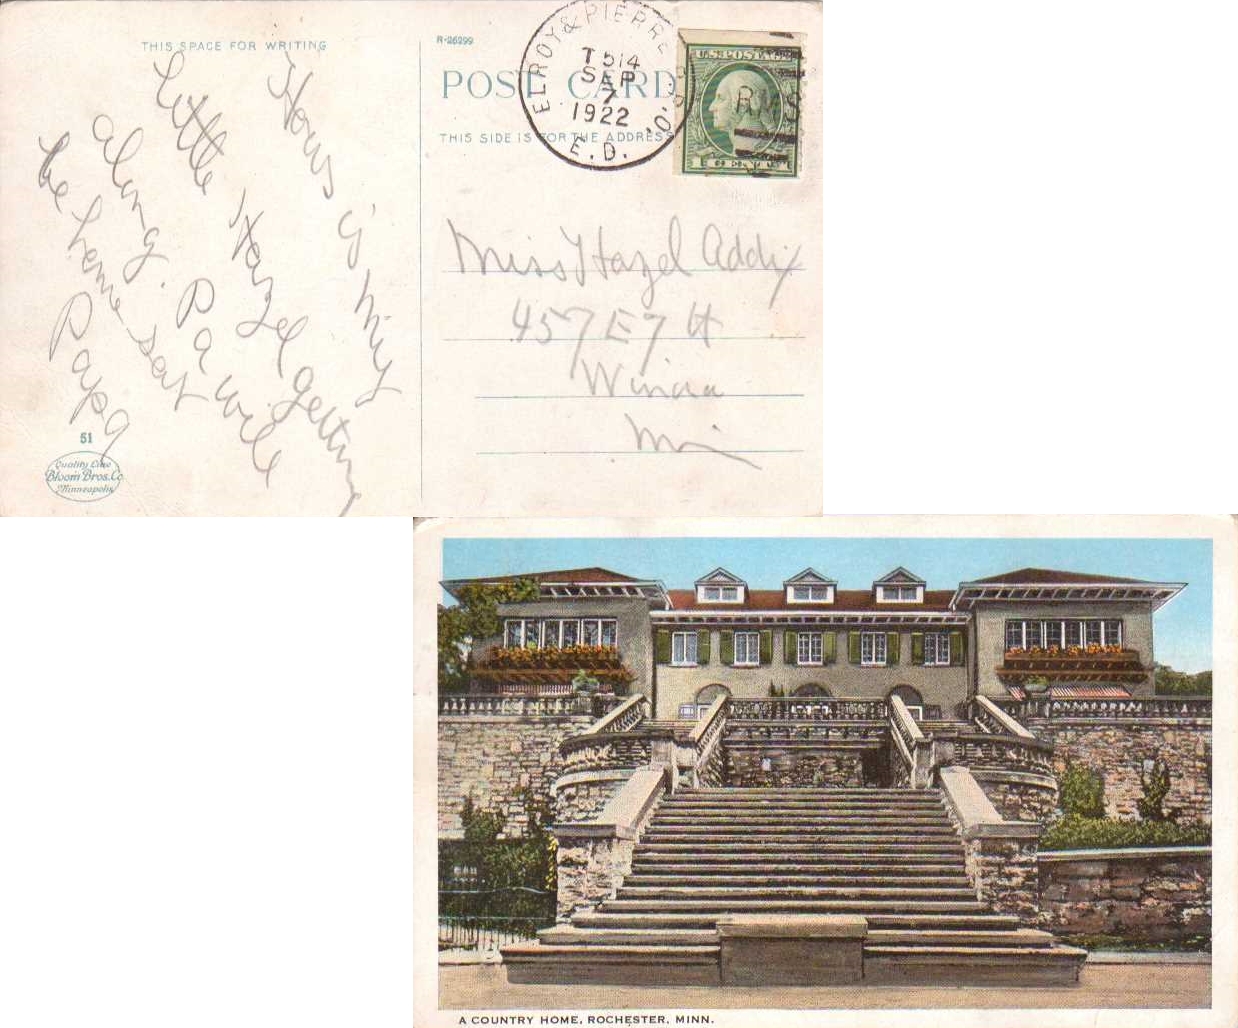 THIS SPACE FOR WRITING
Hows is my
little Hazel getting
along. Pa will
be home sat
Papa
51
Quality Line
Bloom Bros. Co
Minneapolis
R-26299
POST CARD
THIS SIDE IS FOR THE ADDRESS
ELROY & PIERRE R.P.O.
T 514
SEP
7
1922
E.D.
U.S. POSTAGE
RMS
Miss Hazel Addix
457 E 7 th
Winona
A COUNTRY HOME, ROCHESTER, MINN.